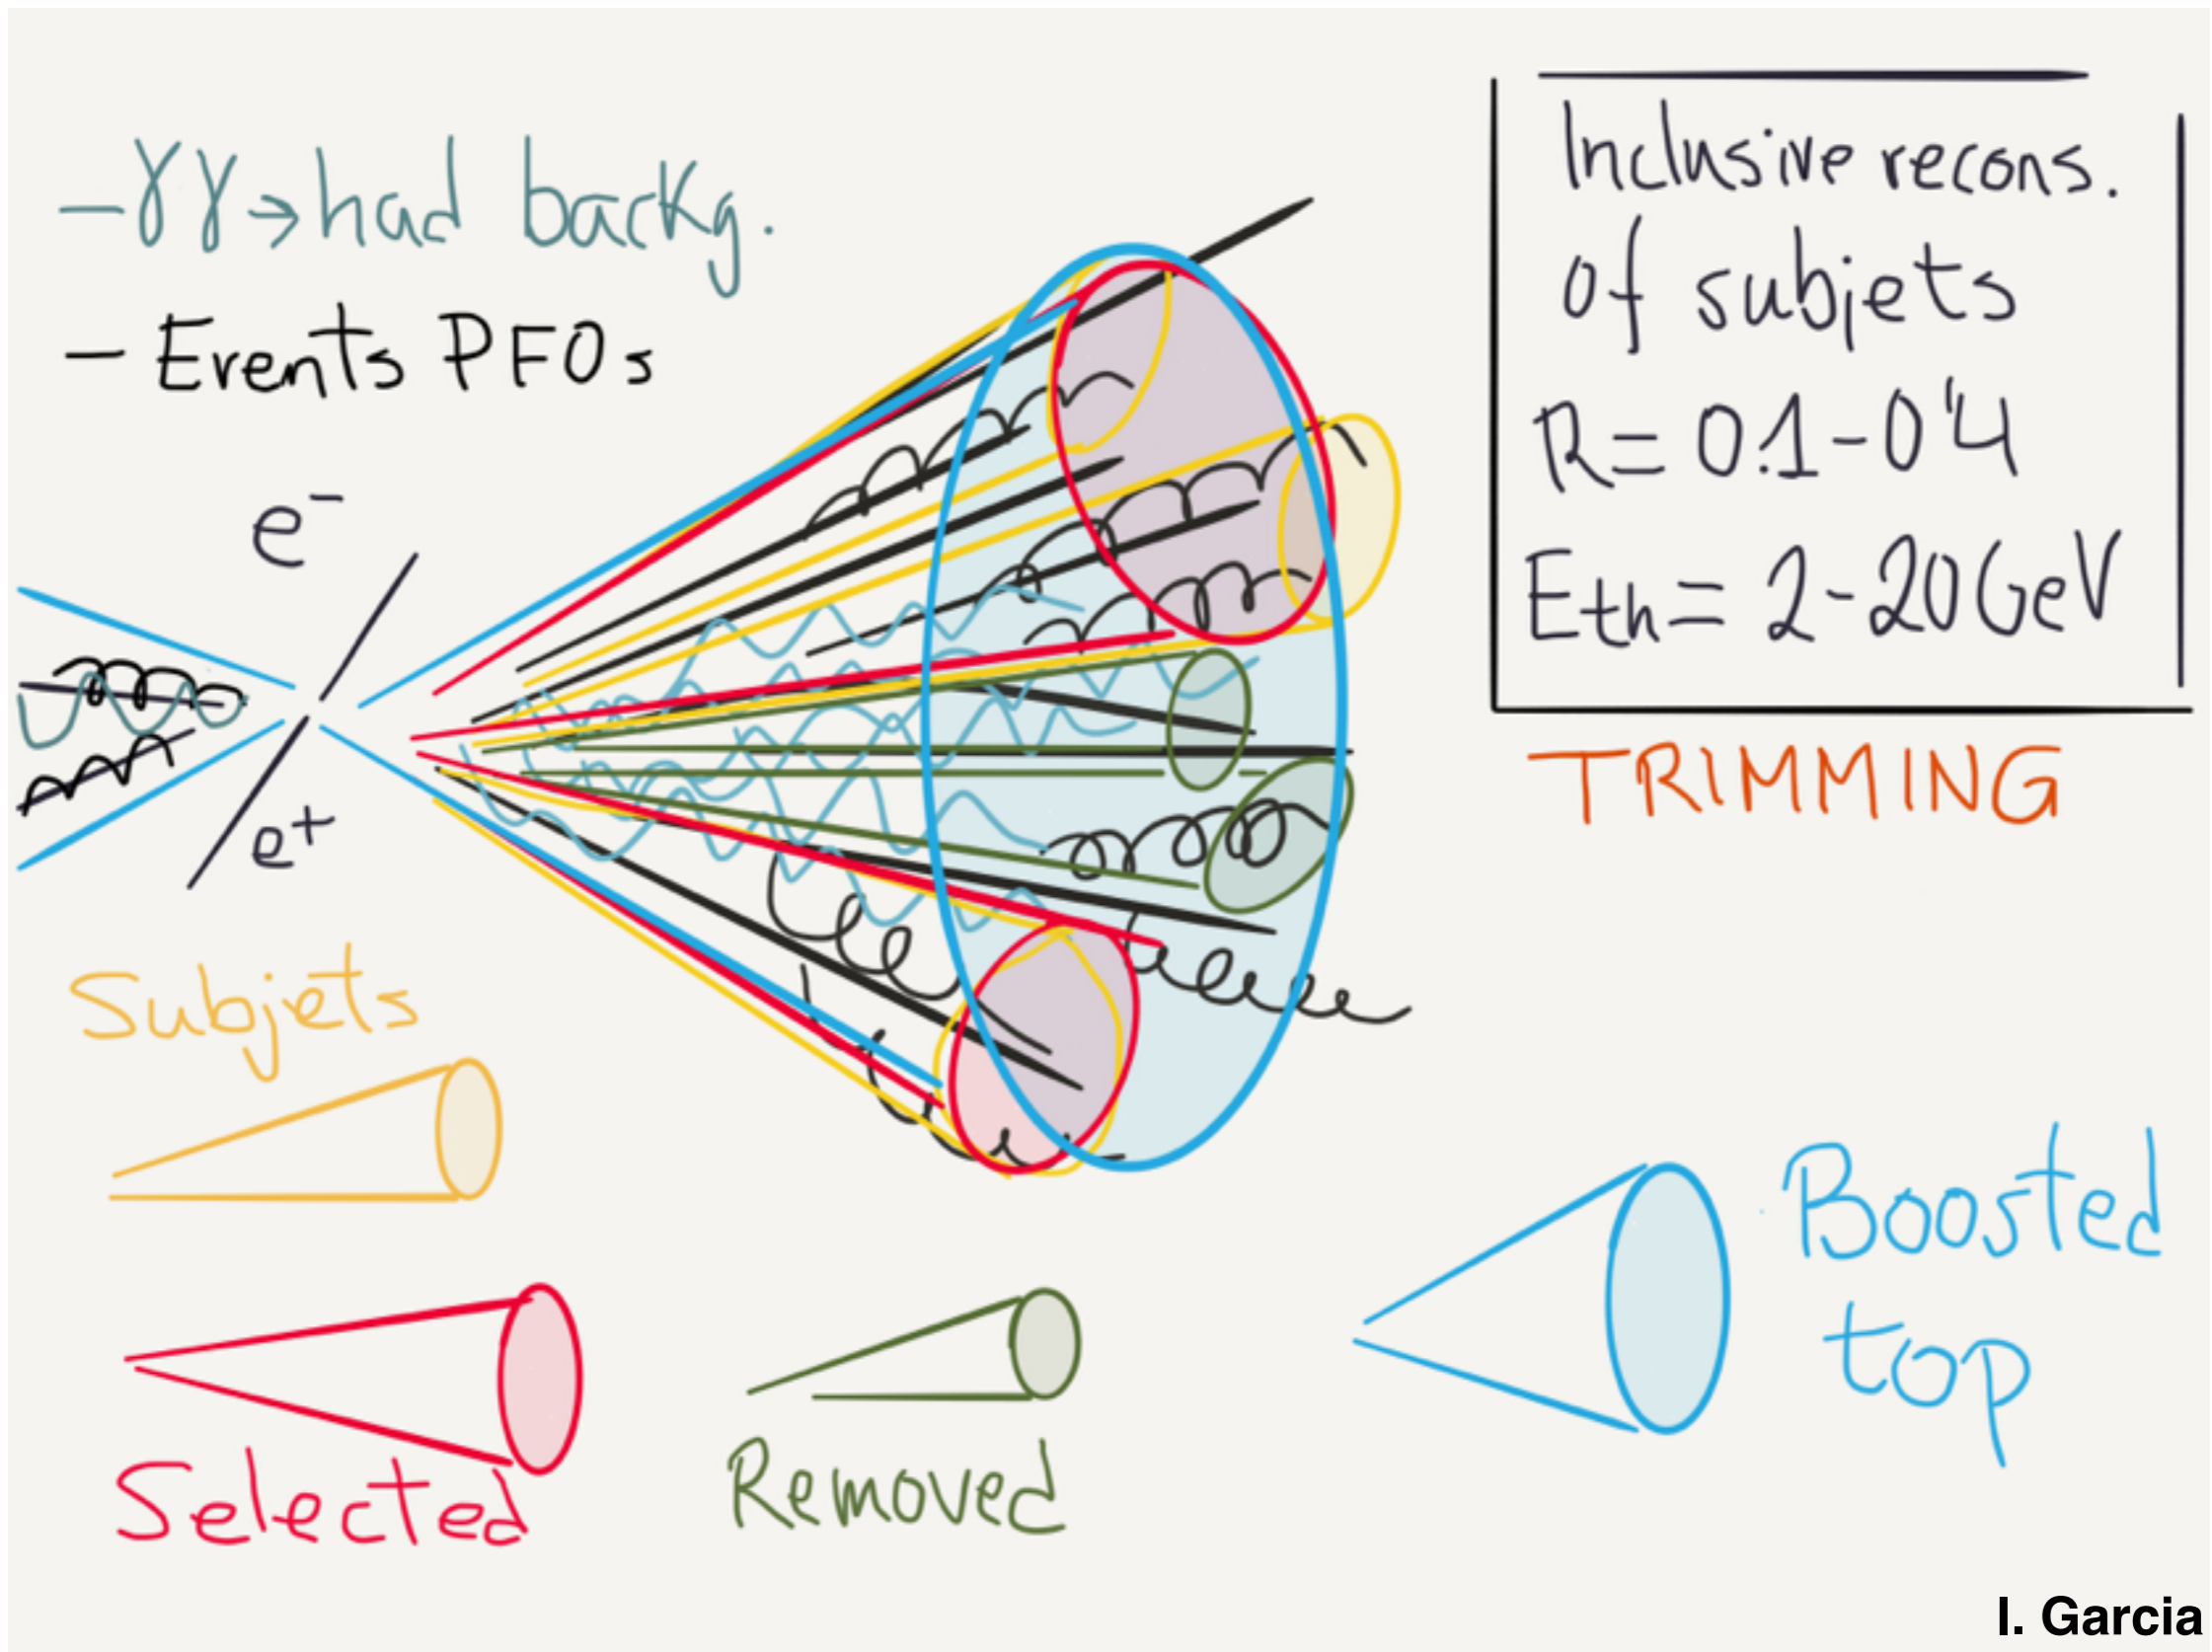 -γγ→had backg.
- Events PFOs
Inclusive recons.
of subjets
R=0.1-0'4
Eth=2-20GeV
TRIMMING
e-
e+
Subjets
Selected
Removed
Boosted
top
I. Garcia